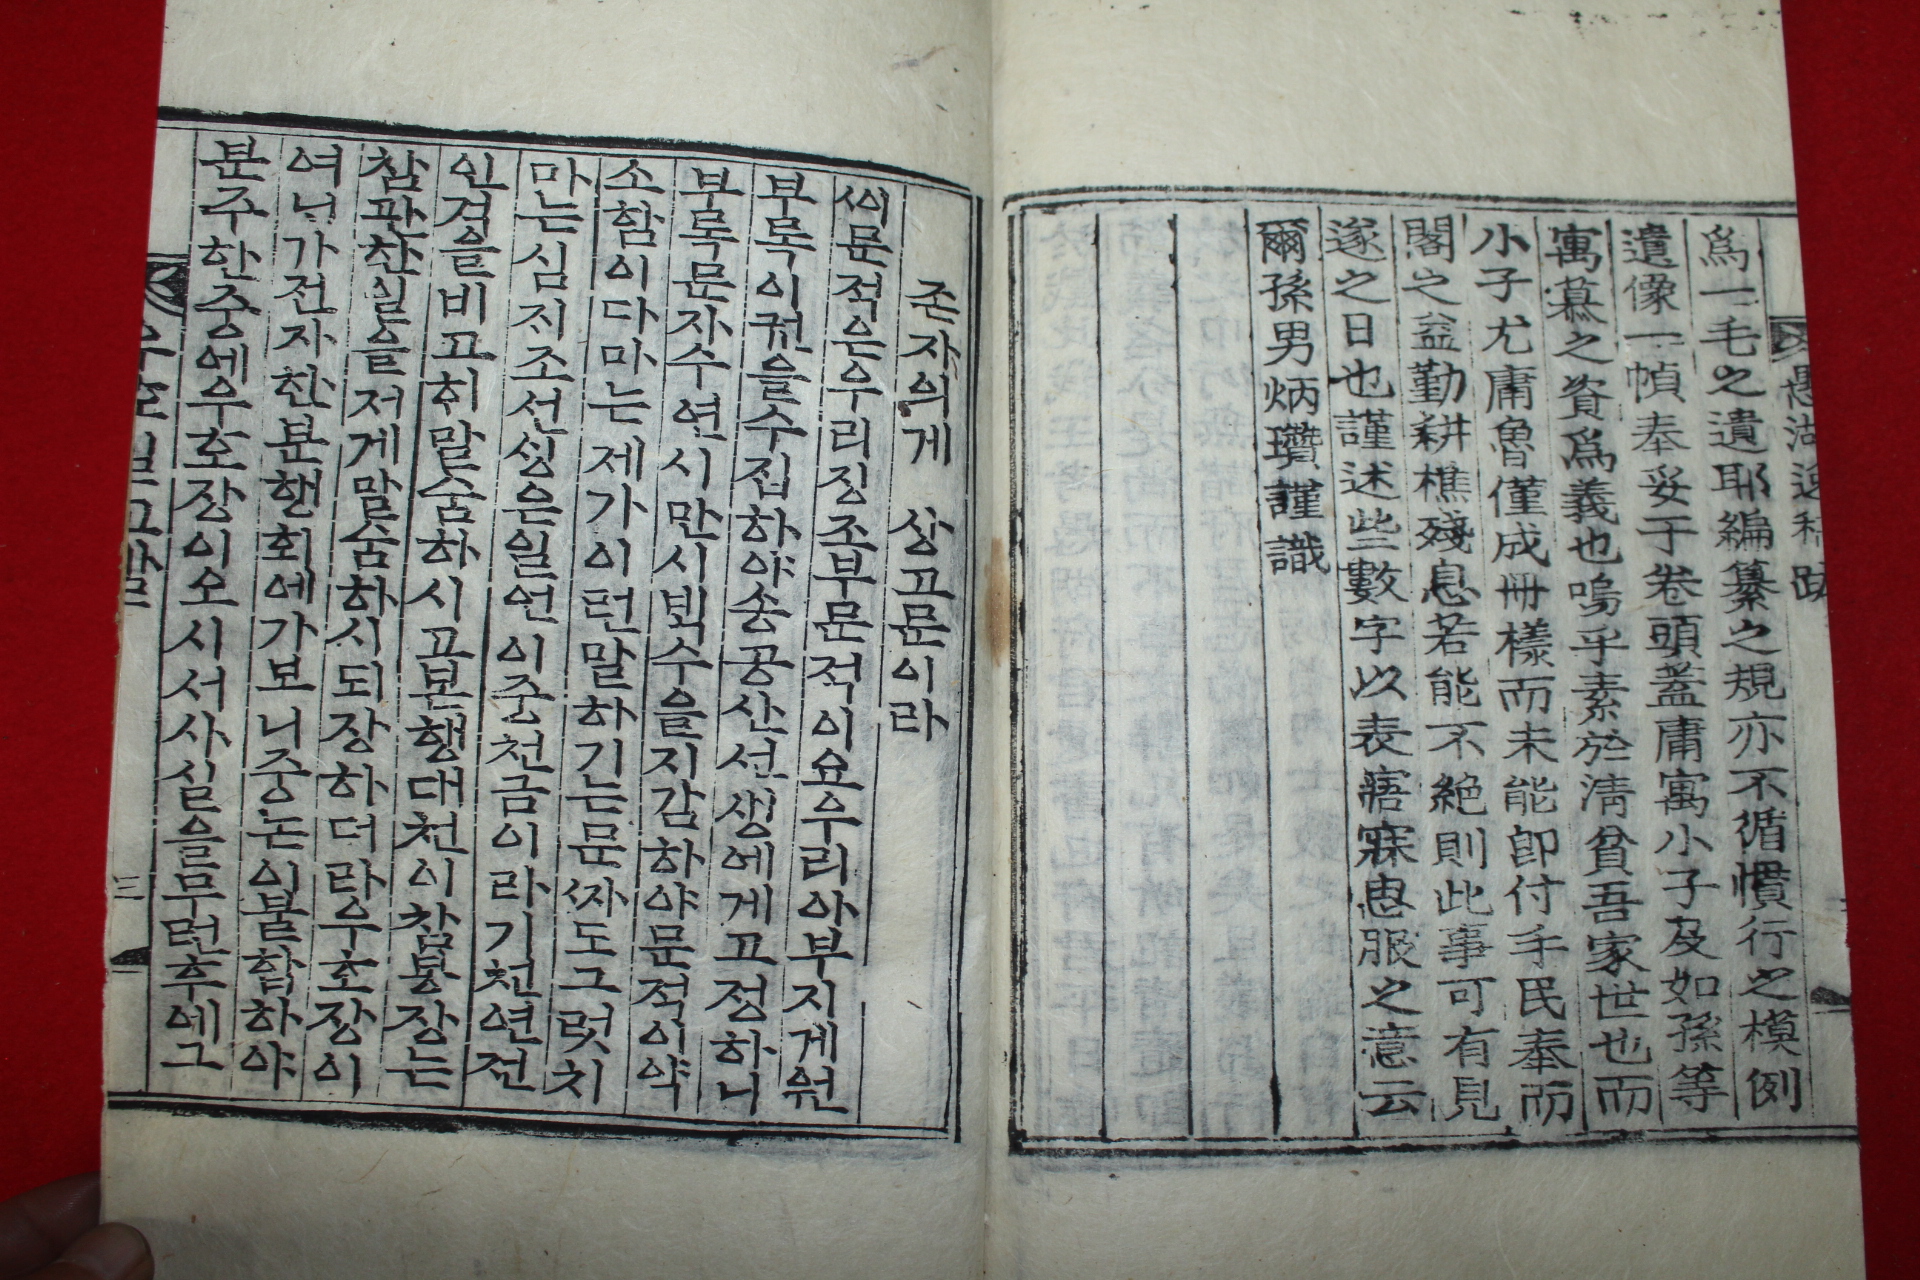 爲一毛之遺耶編纂之規亦不循慣行之模例
遺像一幀奉妥于卷頭蓋庸寓小子及如孫等
寓慕之資爲義也嗚乎素於淸貧吾家世也而
小子尤庸魯僅成冊樣而未能卽付手民奉而
閣之益勤耕樵殘息若能不絶則此事可有見
遂之日也謹述些數字以表寤寐思服之意云
爾孫男炳瓚謹識
존자의게 상고문이라
씨문적은우리징조부문적이요우리아부지게원
부록이권을수집하야송공산선생에게교정하니
부록문자수연시만시뵈수을지감하야문적이약
소함이다마는제가이런말하기는문싸도그럿치
만는심지조선성은일언이중천금이라기천연전
인걱을비고히말숨하시고본행대천이참봉장는
참판찬일을저게말숨하시되장하더라우호장이
여닉가전자한분핸회에가보니중논이불합하야
분주한중에우호장이오시서사실을무런후에그
三